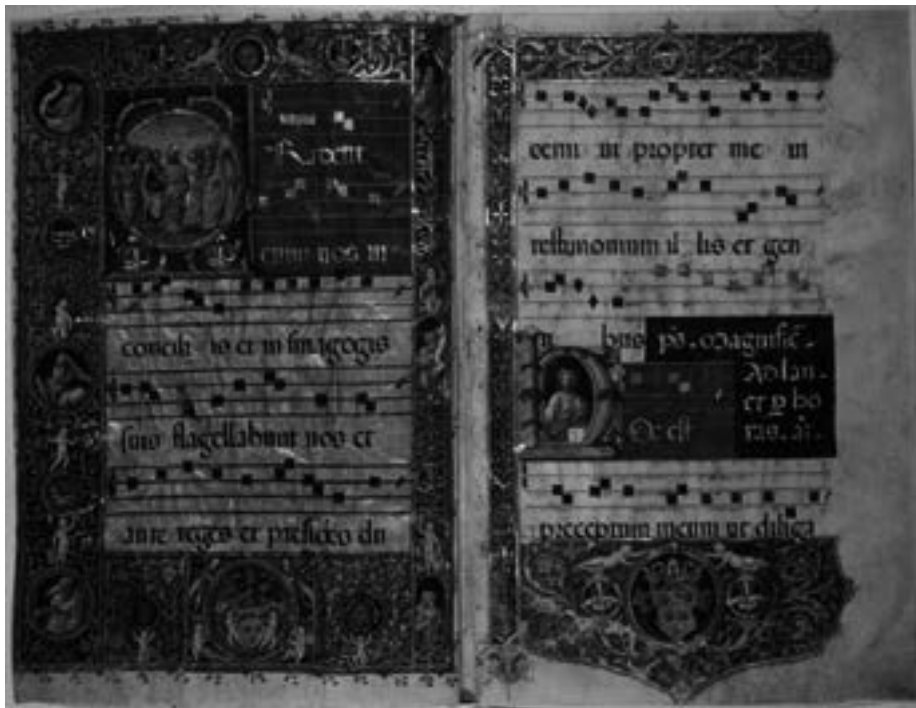 enim uos in
concili is et in sinagogis
suis flagellabunt uos et
ante reges et presides du
cemi ni propter me in
testimonium il lis et gen
bus ps. Magnific.
Ad lau.
et ꝑ ho
ras. añ.
oc est
preceptum meum ut diliga